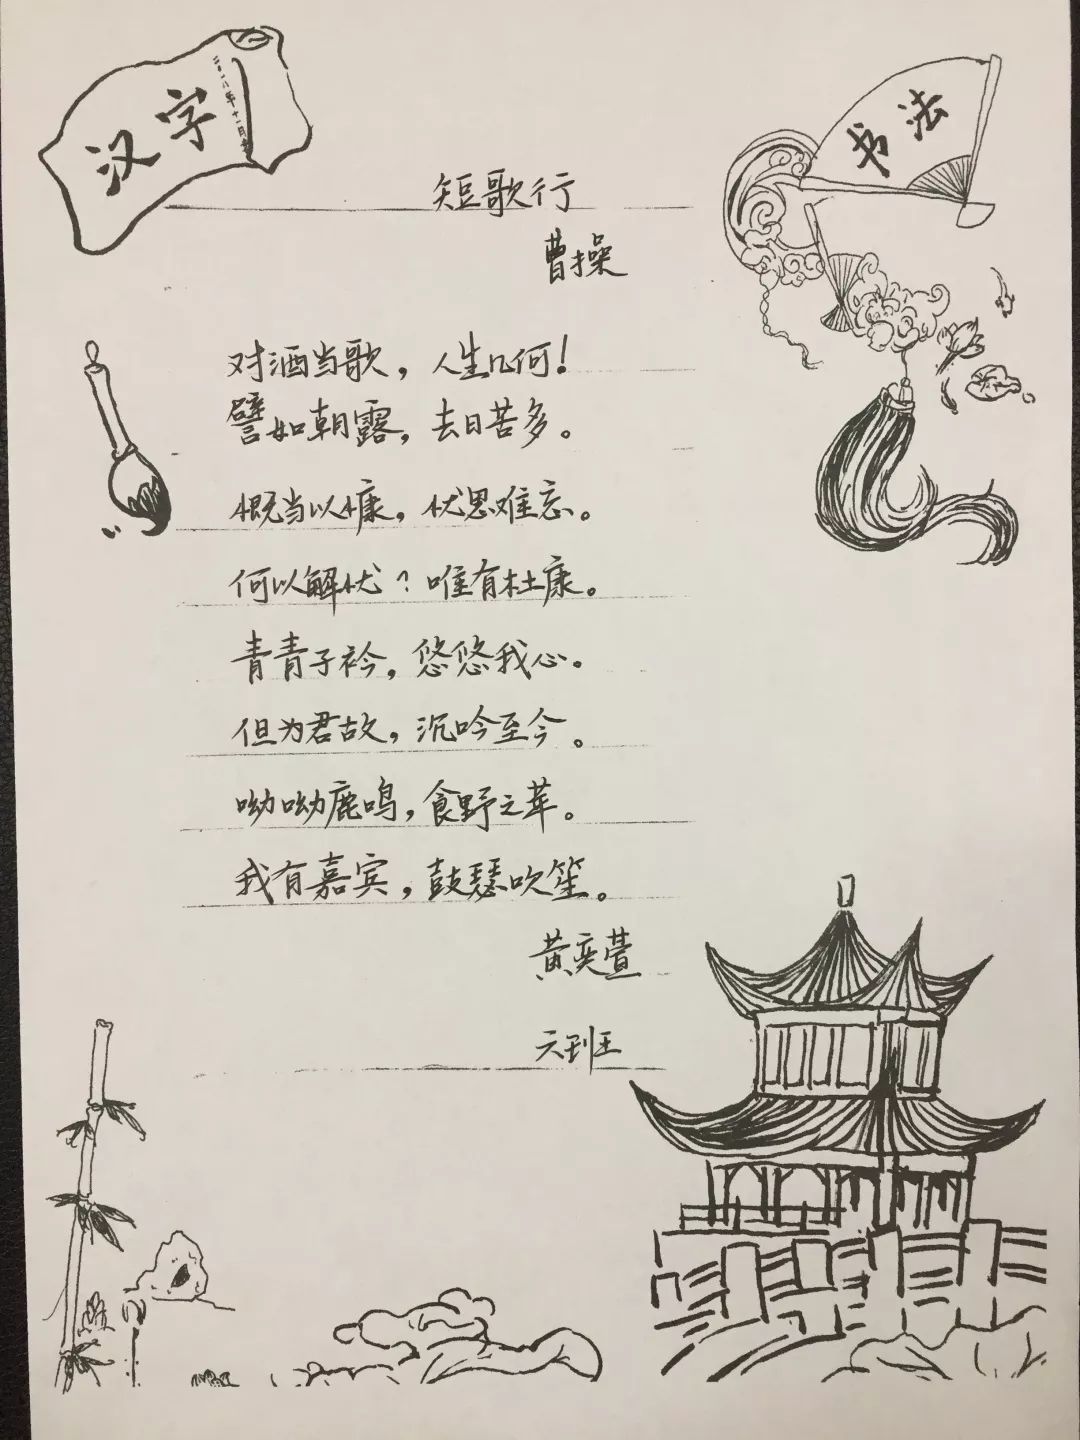 汉字
二〇一八年十一月
书法
短歌行
曹操
对酒当歌，人生几何！
譬如朝露，去日苦多。
慨当以慷，忧思难忘。
何以解忧？唯有杜康。
青青子衿，悠悠我心。
但为君故，沉吟至今。
呦呦鹿鸣，食野之苹。
我有嘉宾，鼓瑟吹笙。
黄奕萱
六班